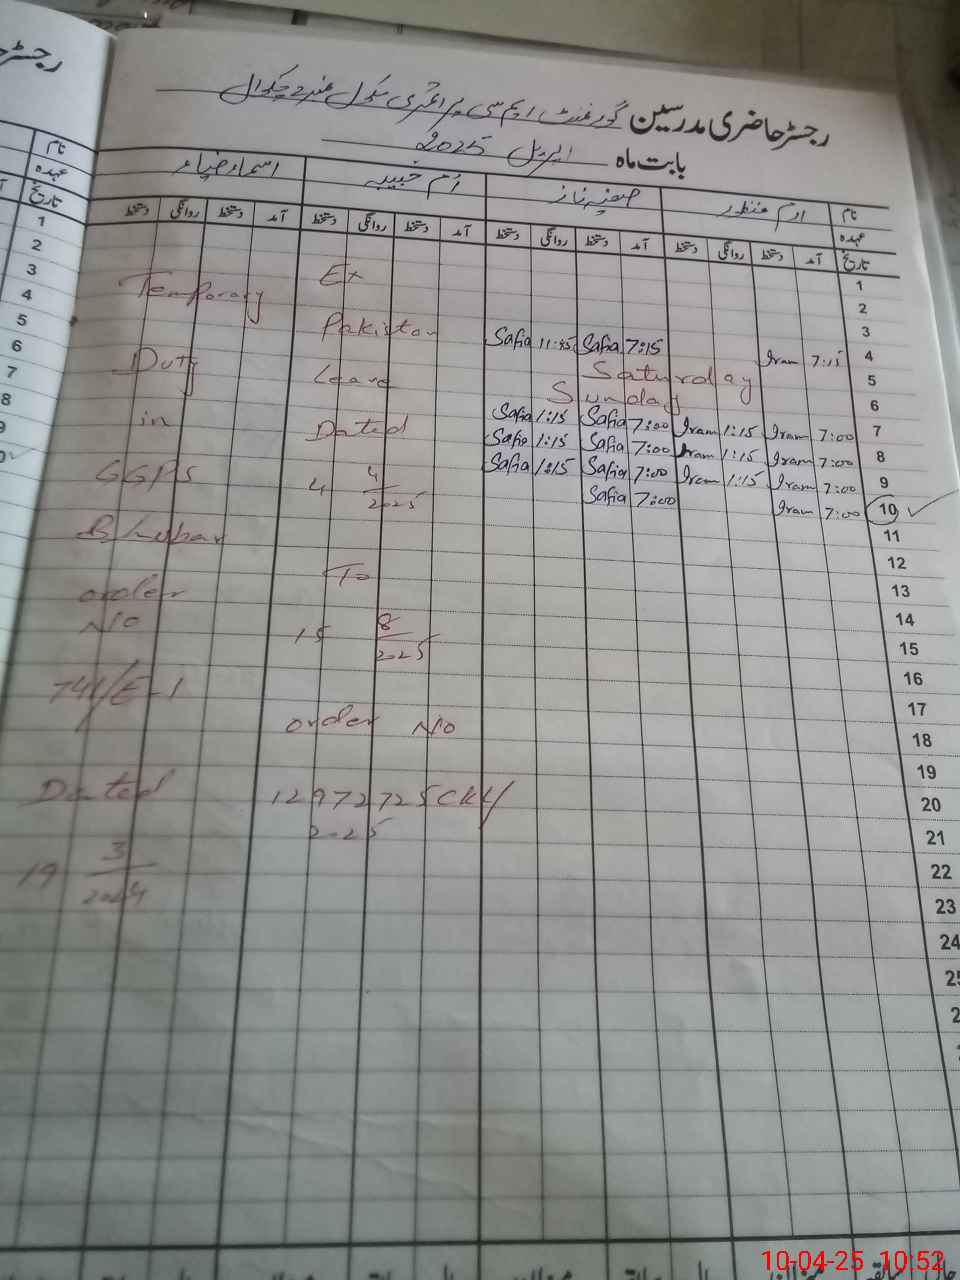 رجسٹر حاضری مدرسین گورنمنٹ ایم سی پرائمری سکول
بابت ماہ اپریل 2025
نام ارم منظور صفیہ ناز ام حبیبہ اسماء ضیاء
عہدہ
تاریخ آمد دستخط روانگی دستخط آمد دستخط روانگی دستخط آمد دستخط روانگی دستخط آمد دستخط روانگی دستخط
1
2
3
4 7:15 Iram 7:15 Safia 11:45 Safia
5 Saturday
6 Sunday
7 7:00 Iram 1:15 Iram 7:00 Safia 1:15 Safia
8 7:00 Iram 1:15 Iram 7:00 Safia 1:15 Safia
9 7:00 Iram 1:15 Iram 7:00 Safia 1:15 Safia
10 7:00 Iram 7:00 Safia
11
12
13
14
15
16
17
18
19
20
21
22
23
24
Ex
Pakistan
Leave
Dated
4 4/2025
To
15 8/2025
order No
Temporary
Duty
in
GGPS
order
No
741/E-1
Dated
19 3/2024
نام
عہدہ
تاریخ
1
2
3
4
5
6
7
8
10-04-25 10:52